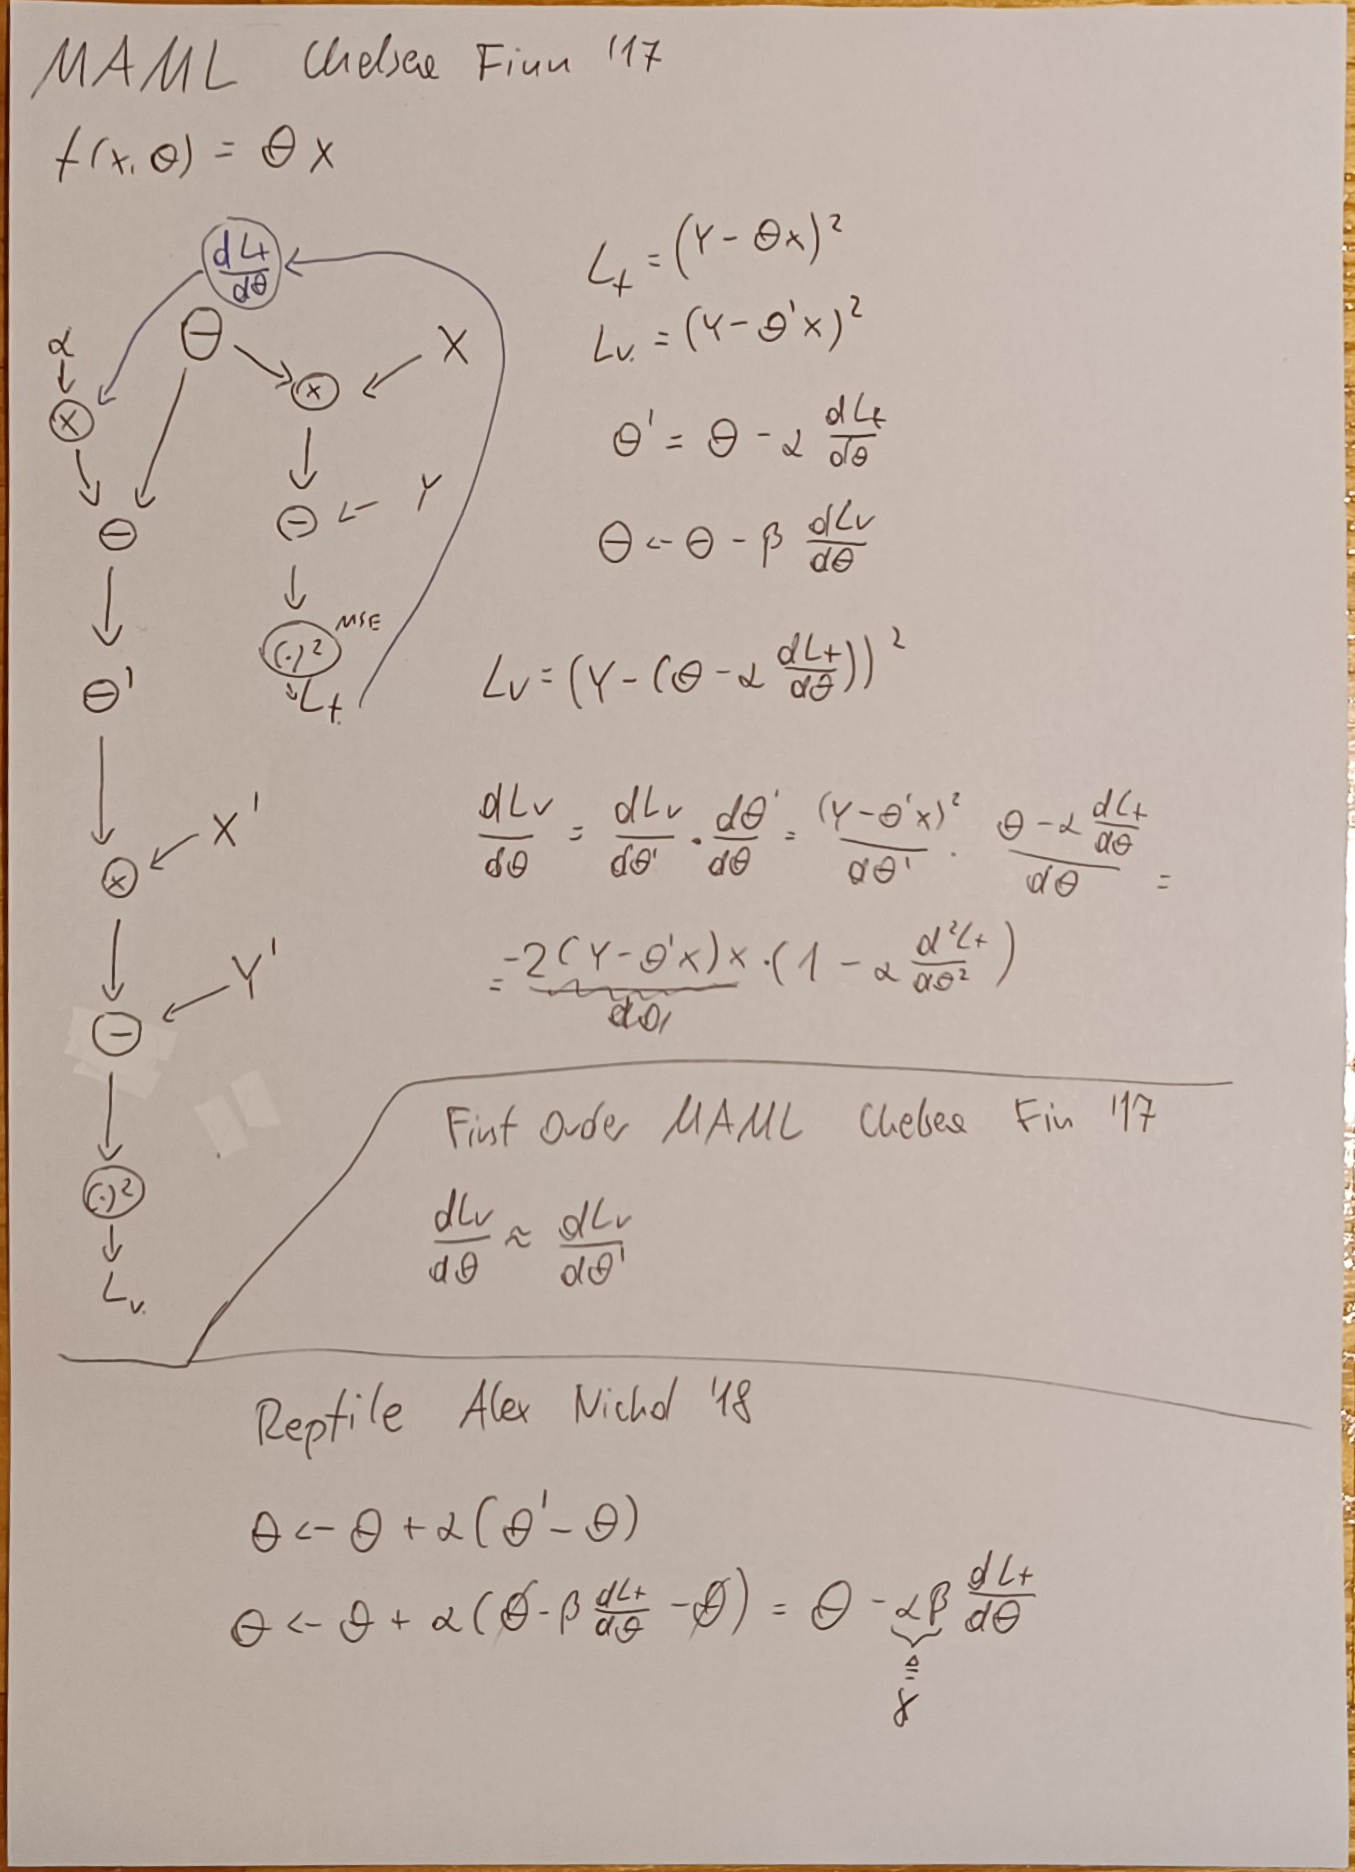 MAML Chelsea Finn '17
f(x, θ) = θ x
dLt/dθ
α
θ
x
×
×
−
Y
−
(·)² MSE
Lt
θ'
x'
×
Y'
−
(·)²
Lv.
Lt = (Y − θx)²
Lv. = (Y − θ'x)²
θ' = θ − α dLt/dθ
θ ← θ − β dLv/dθ
Lv = (Y − (θ − α dLt/dθ))²
dLv/dθ = dLv/dθ' · dθ'/dθ = (Y − θ'x)²/dθ' · θ − α dLt/dθ/dθ =
= −2(Y − θ'x)x · (1 − α d²Lt/dθ²)
First Order MAML Chelsea Fin '17
dLv/dθ ≈ dLv/dθ'
Reptile Alex Nichol '18
θ ← θ + α(θ' − θ)
θ ← θ + α(θ − β dLt/dθ − θ) = θ − αβ dLt/dθ
≜
γ